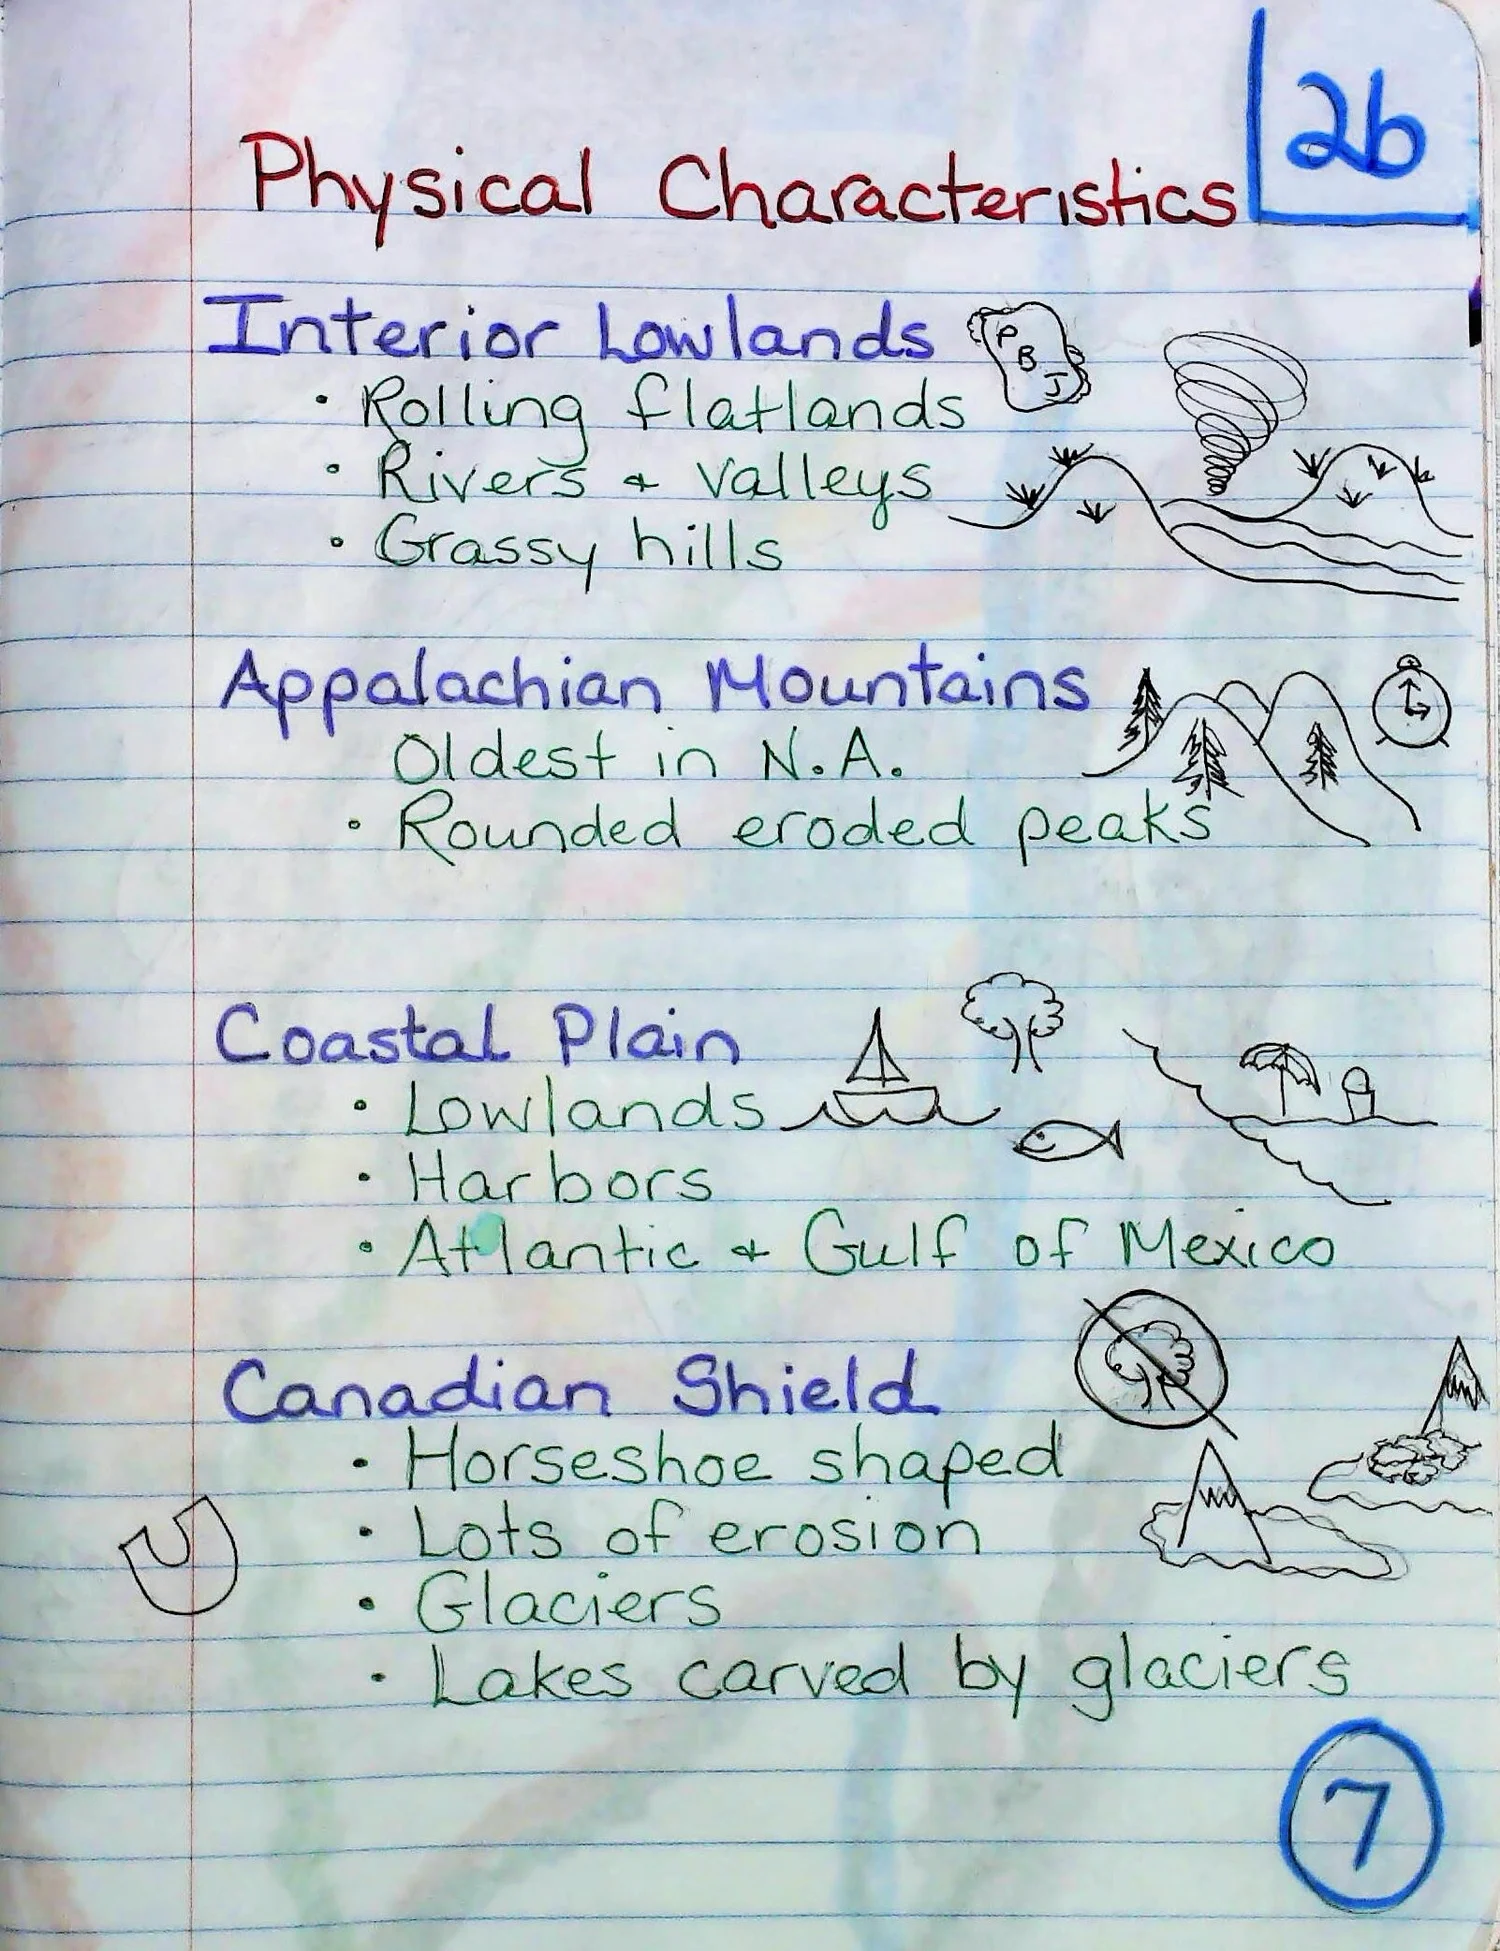 2b
Physical Characteristics
Interior Lowlands
P
B
J
• Rolling flatlands
• Rivers & valleys
• Grassy hills
Appalachian Mountains
Oldest in N.A.
• Rounded eroded peaks
Coastal Plain
• Lowlands
• Harbors
• Atlantic & Gulf of Mexico
Canadian Shield
• Horseshoe shaped
• Lots of erosion
• Glaciers
• Lakes carved by glaciers
7